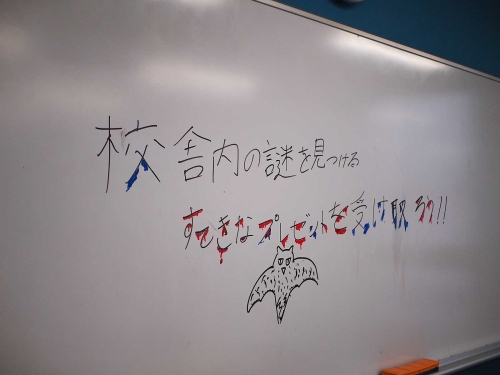 校舎内の謎を見つける
すてきなプレゼントを受け取ろう!!